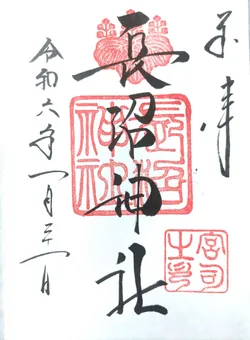 奉拝
長沼神社
長沼神社
宮司之印
令和六年一月三一日